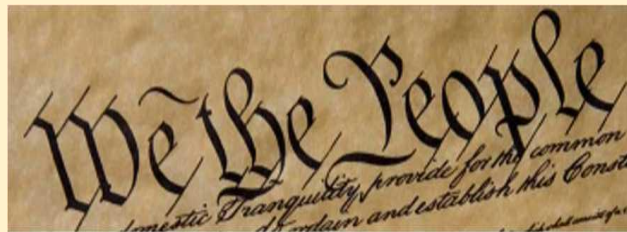 We the People
domestic Tranquility, provide for the common
ordain and establish this Const